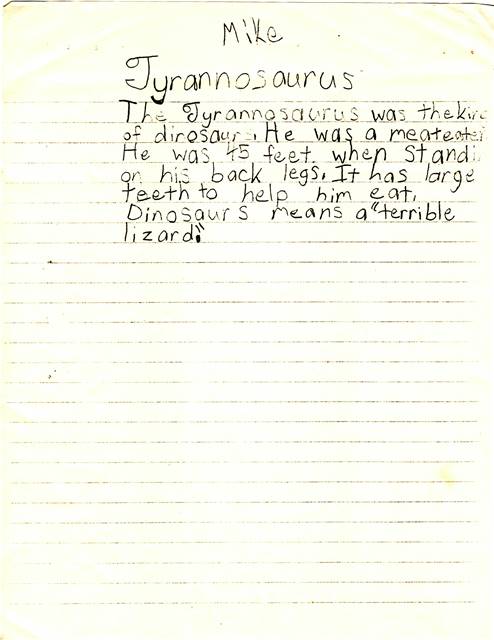 Mike
Tyrannosaurus
The Tyrannosaurus was the king
of dinosaurs. He was a meateater
He was 45 feet when Standi
on his back legs. It has large
teeth to help him eat.
Dinosaurs means a "terrible
lizard."